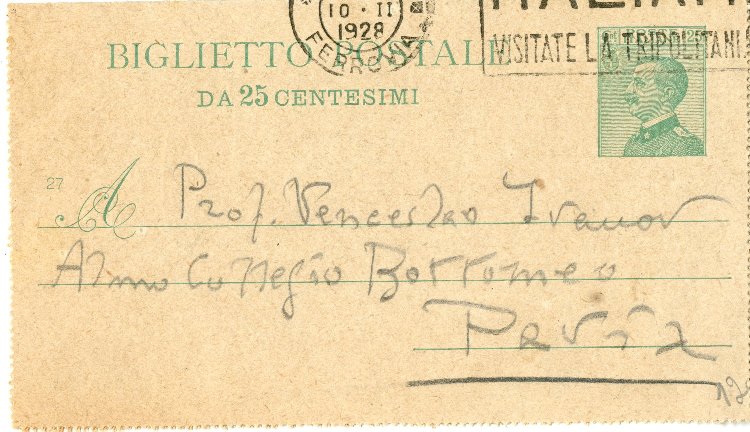 10 · II
1928
FERROVIA
VISITATE LA TRIPOLITANI
BIGLIETTO POSTALE
25
DA 25 CENTESIMI
27
A Prof. Venceslao Ivanov
Almo Collegio Borromeo
Pavia
12